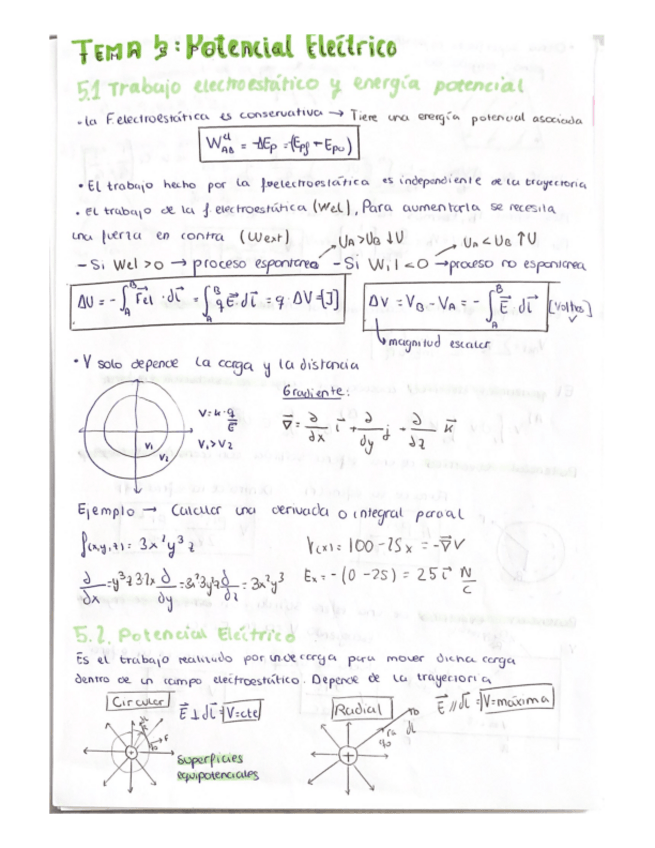 TEMA 5: Potencial Eléctrico
5.1 Trabajo electroestático y energía potencial
• la F. electroestática es conservativa → Tiene una energía potencial asociada
W_AB^el = -ΔEp = -(Epf - Epo)
• El trabajo hecho por la f. electroestática es independiente de la trayectoria
• el trabajo de la f. electroestática (Wel), Para aumentarla se necesita
una fuerza en contra (Wext) UA > UB ↓U UA < UB ↑U
- Si Wel > 0 → proceso espontánea - Si Wel < 0 → proceso no espontánea
ΔU = -∫_A^B F⃗el · dl⃗ = ∫_A^B qE⃗ · dl⃗ = q · ΔV = [J] ΔV = VB - VA = -∫_A^B E⃗ · dl⃗ [Voltios]
V
magnitud escalar
• V solo depende la carga y la distancia
Gradiente:
V = k · q
V1 > V2
∇⃗ = ∂/∂x i⃗ + ∂/∂y j⃗ + ∂/∂z k⃗
V1
V2
Ejemplo → Calcular una derivada o integral parcial
f(x,y,z) = 3x²y³z V(x) = 100 - 25x = -∇⃗V
∂/∂x = y³z32x ∂/∂y = 3x²3y²z ∂/∂z = 3x²y³ Ex = -(0 - 25) = 25 i⃗ N/C
5.2. Potencial Eléctrico
Es el trabajo realizado por u de carga para mover dicha carga
dentro de un campo electroestático. Depende de la trayectoria
Circular E⃗ ⊥ dl⃗ = V=cte Radial E⃗ // dl⃗ = V=máxima
Superficies
equipotenciales